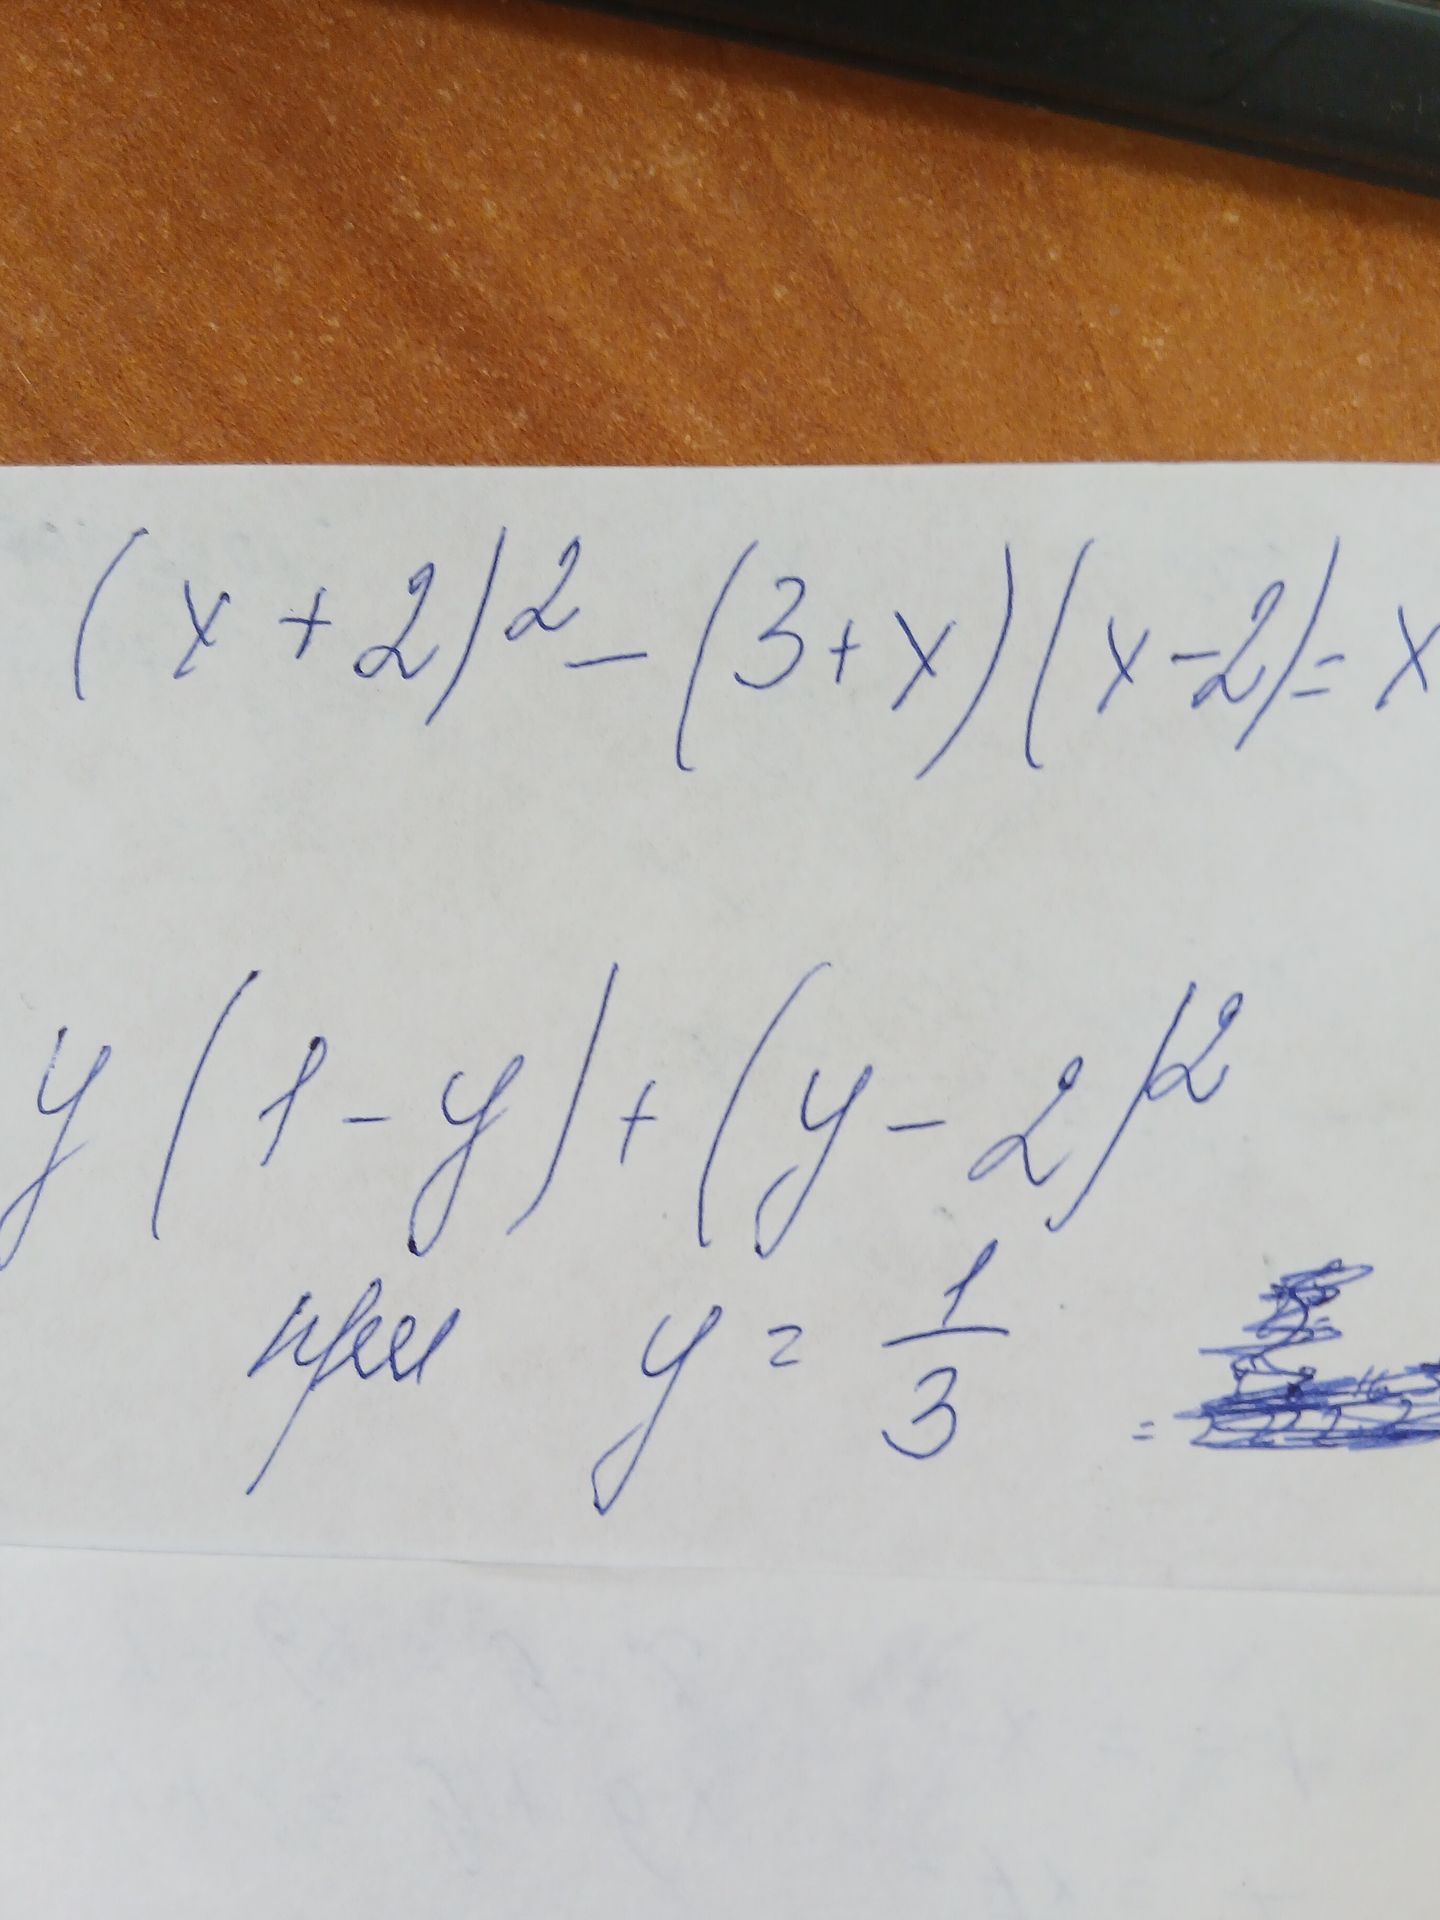 (x + 2)² - (3 + x)(x - 2) = x
y(1 - y) + (y - 2)²
при y = 1/3
=